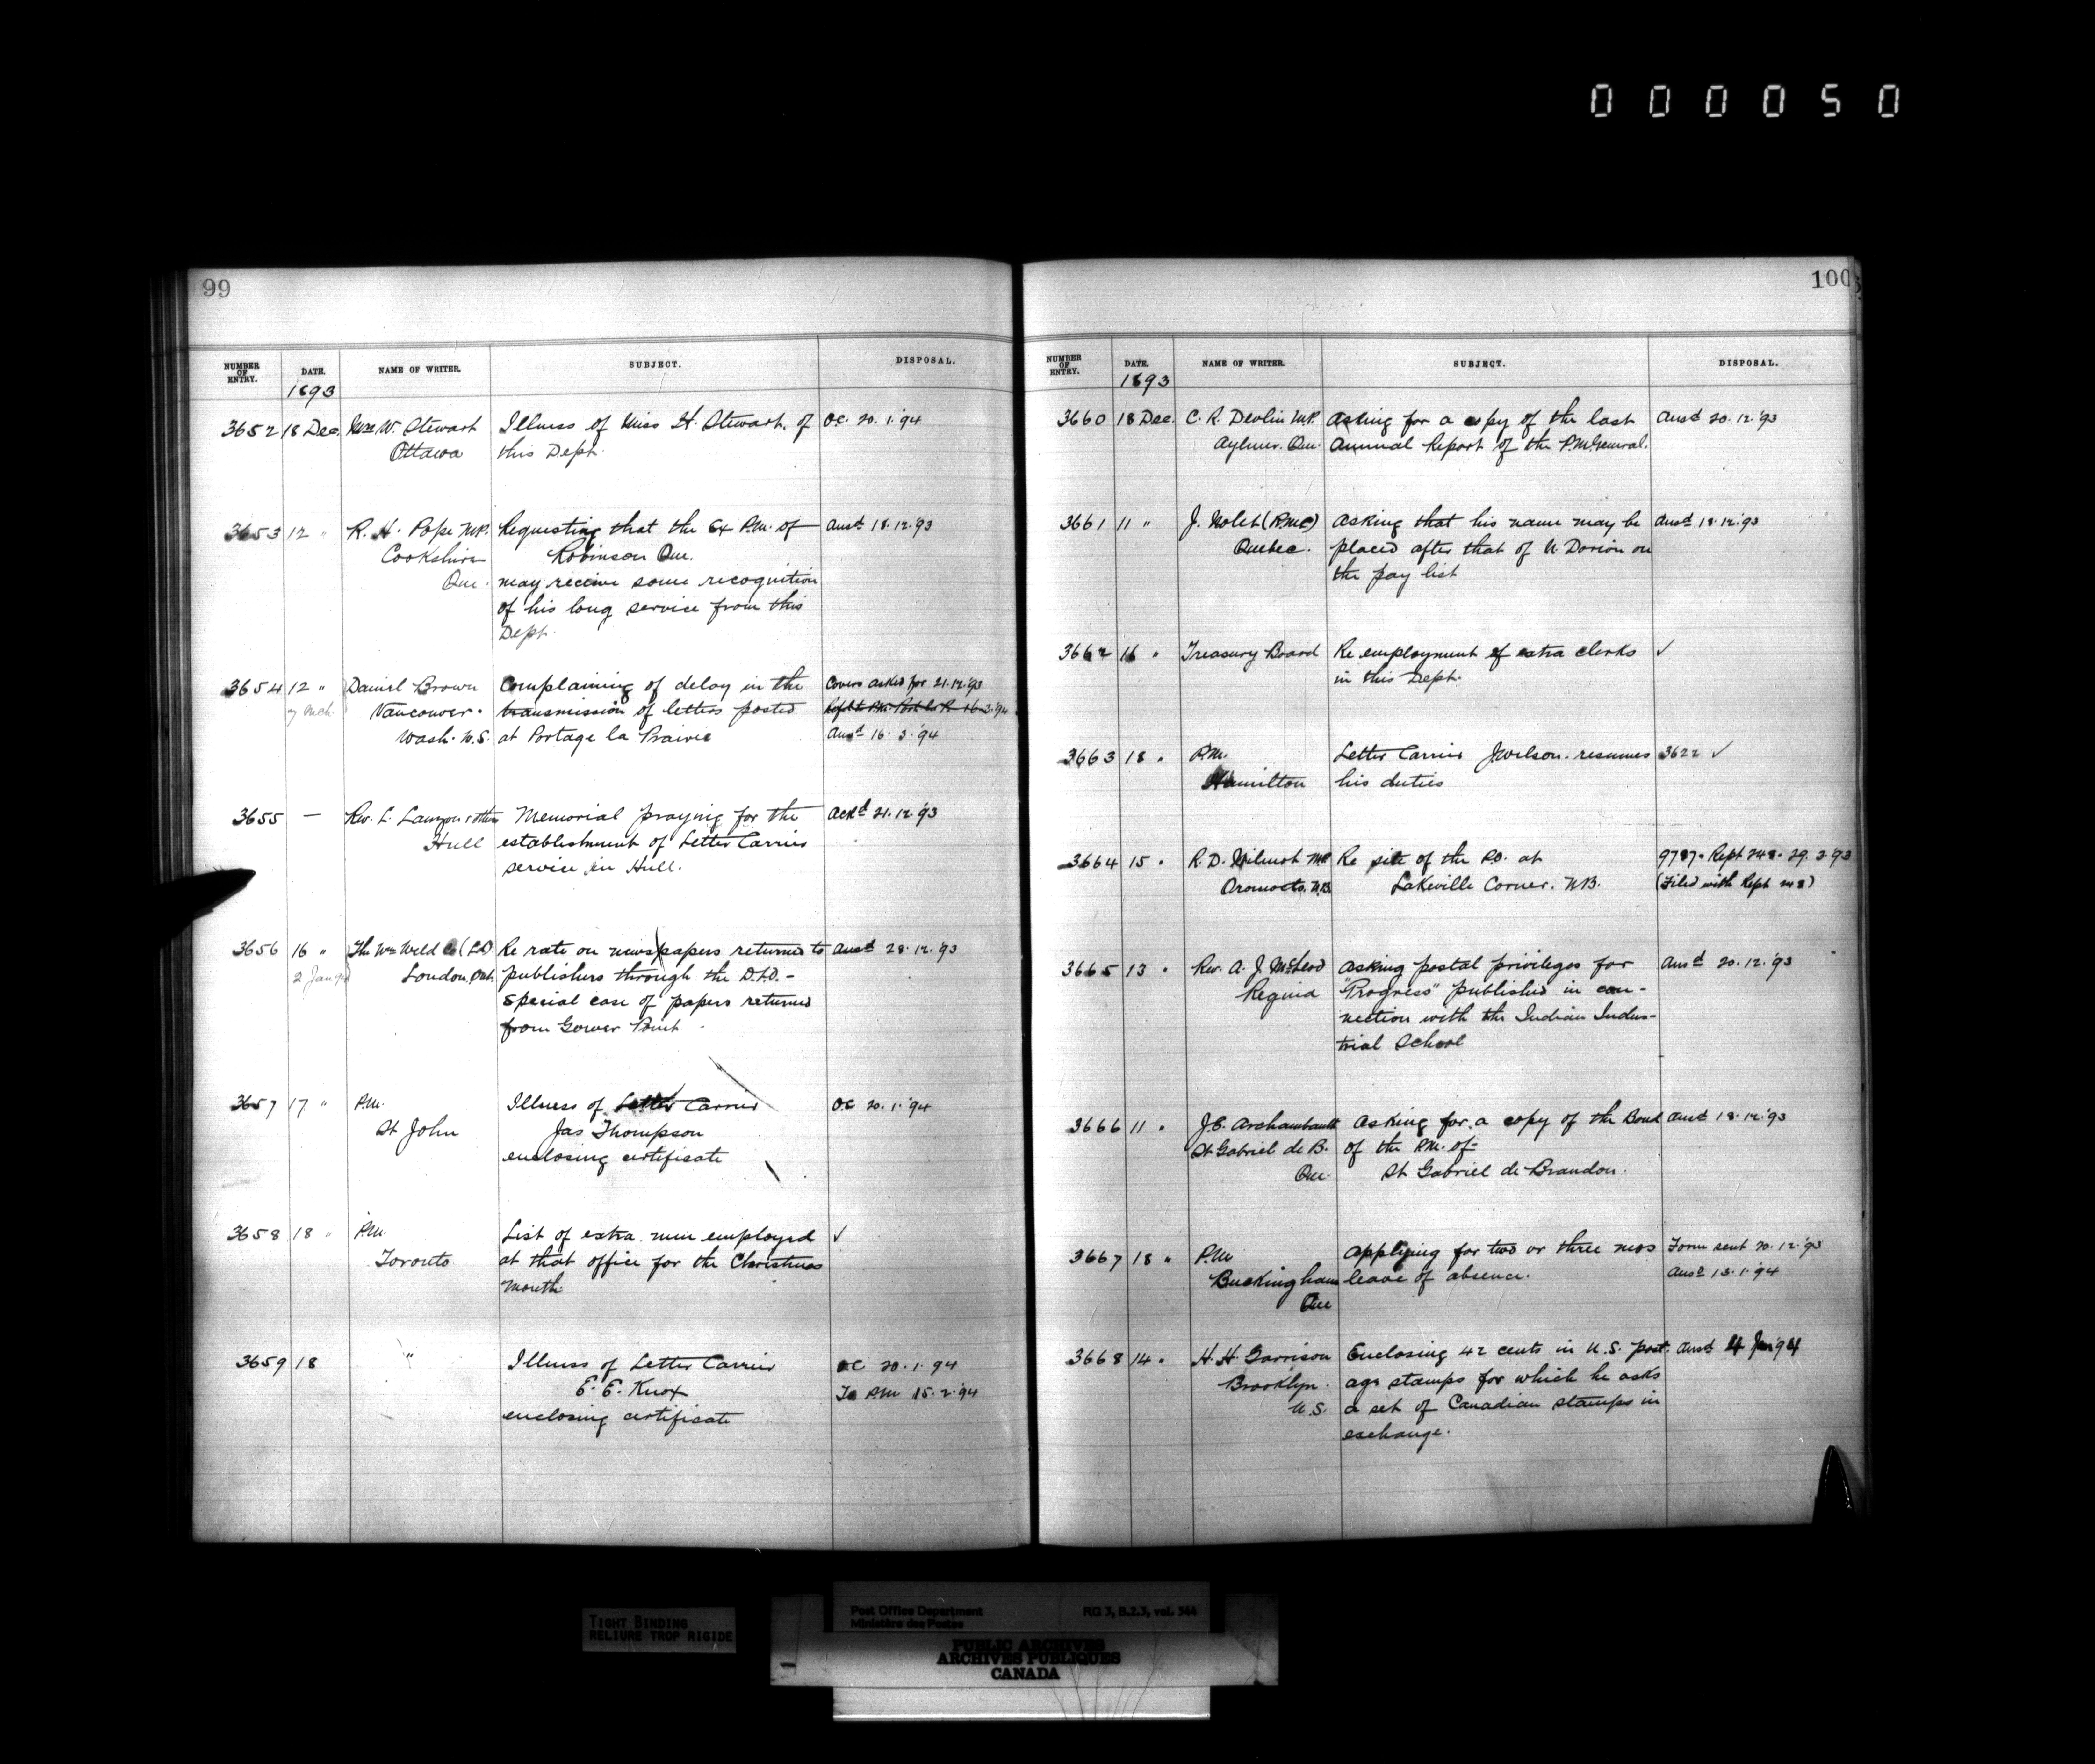 000050
99
NUMBER OF ENTRY. DATE. NAME OF WRITER. SUBJECT. DISPOSAL.
1893
3652 18 Dec. Mrs W. Stewart Illness of Miss H. Stewart, of O.C. 20.1.'94
Ottawa this Dept.
3653 12 " R. H. Pope M.P. Requesting that the Ex P.M. of Ansd 18.12.'93
Cookshire Robinson Que.
Que. may receive some recognition
of his long service from this
Dept.
3654 12 " Daniel Brown Complaining of delay in the Covers asked for 21.12.'93
7 Mch. Vancouver. transmission of letters posted
Wash. U.S. at Portage la Prairie Ansd 16.3.'94
3655 — Rev. L. Lauzon & others Memorial praying for the Ackd 21.12.'93
Hull establishment of Letter Carrier
service in Hull.
3656 16 " The Wm Weld Co (Ltd) Re rate on newspapers returned to Ansd 28.12.'93
2 Jan London, Ont. publishers through the D.L.O. -
special case of papers returned
from Gower Point
3657 17 " P.M. Illness of Letter Carrier O.C 20.1.'94
St John Jas Thompson
enclosing certificate
3658 18 " P.M. List of extra men employed ✓
Toronto at that office for the Christmas
Month
3659 18 " Illness of Letter Carrier O.C 20.1.94
E. E. Knox To P.M 15.2.'94
enclosing certificate
100
NUMBER OF ENTRY. DATE. NAME OF WRITER. SUBJECT. DISPOSAL.
1893
3660 18 Dec. C. R. Devlin M.P. Asking for a copy of the last Ansd 20.12.'93
Aylmer. Que. Annual Report of the P.M. General.
3661 11 " J. Nolet (R.M.C) Asking that his name may be Ansd 18.12.'93
Quebec. placed after that of U. Dorion on
the pay list
3662 16 " Treasury Board Re employment of extra clerks ✓
in this Dept.
3663 18 " P.M. Letter Carrier J. Wilson. resumes 3622 ✓
Hamilton his duties
3664 15 " R. D. Wilmot MP Re site of the P.O. at 9787. Rept 248. 29.3.93
Oromocto. N.B. Lakeville Corner. N.B. (Filed with Rept 248)
3665 13 " Rev. A. J. McLeod Asking postal privileges for Ansd 20.12.'93
Regina "Progress" published in con-
nection with the Indian Indus-
trial School
3666 11 " J.E. Archambault Asking for a copy of the Bond Ansd 18.12.'93
St Gabriel de B. of the P.M. of-
Que. St Gabriel de Brandon.
3667 18 " P.M Applying for two or three mos Form sent 20.12.'93
Buckingham leave of absence. Ansd 13.1.'94
Que
3668 14 " H. H. Garrison Enclosing 42 cents in U.S. post- Ansd 4 Jan '94
Brooklyn. age stamps for which he asks
U.S. a set of Canadian stamps in
exchange.
TIGHT BINDING
RELIURE TROP RIGIDE
Post Office Department RG 3, B.2.3, vol. 544
Ministère des Postes
PUBLIC ARCHIVES
ARCHIVES PUBLIQUES
CANADA